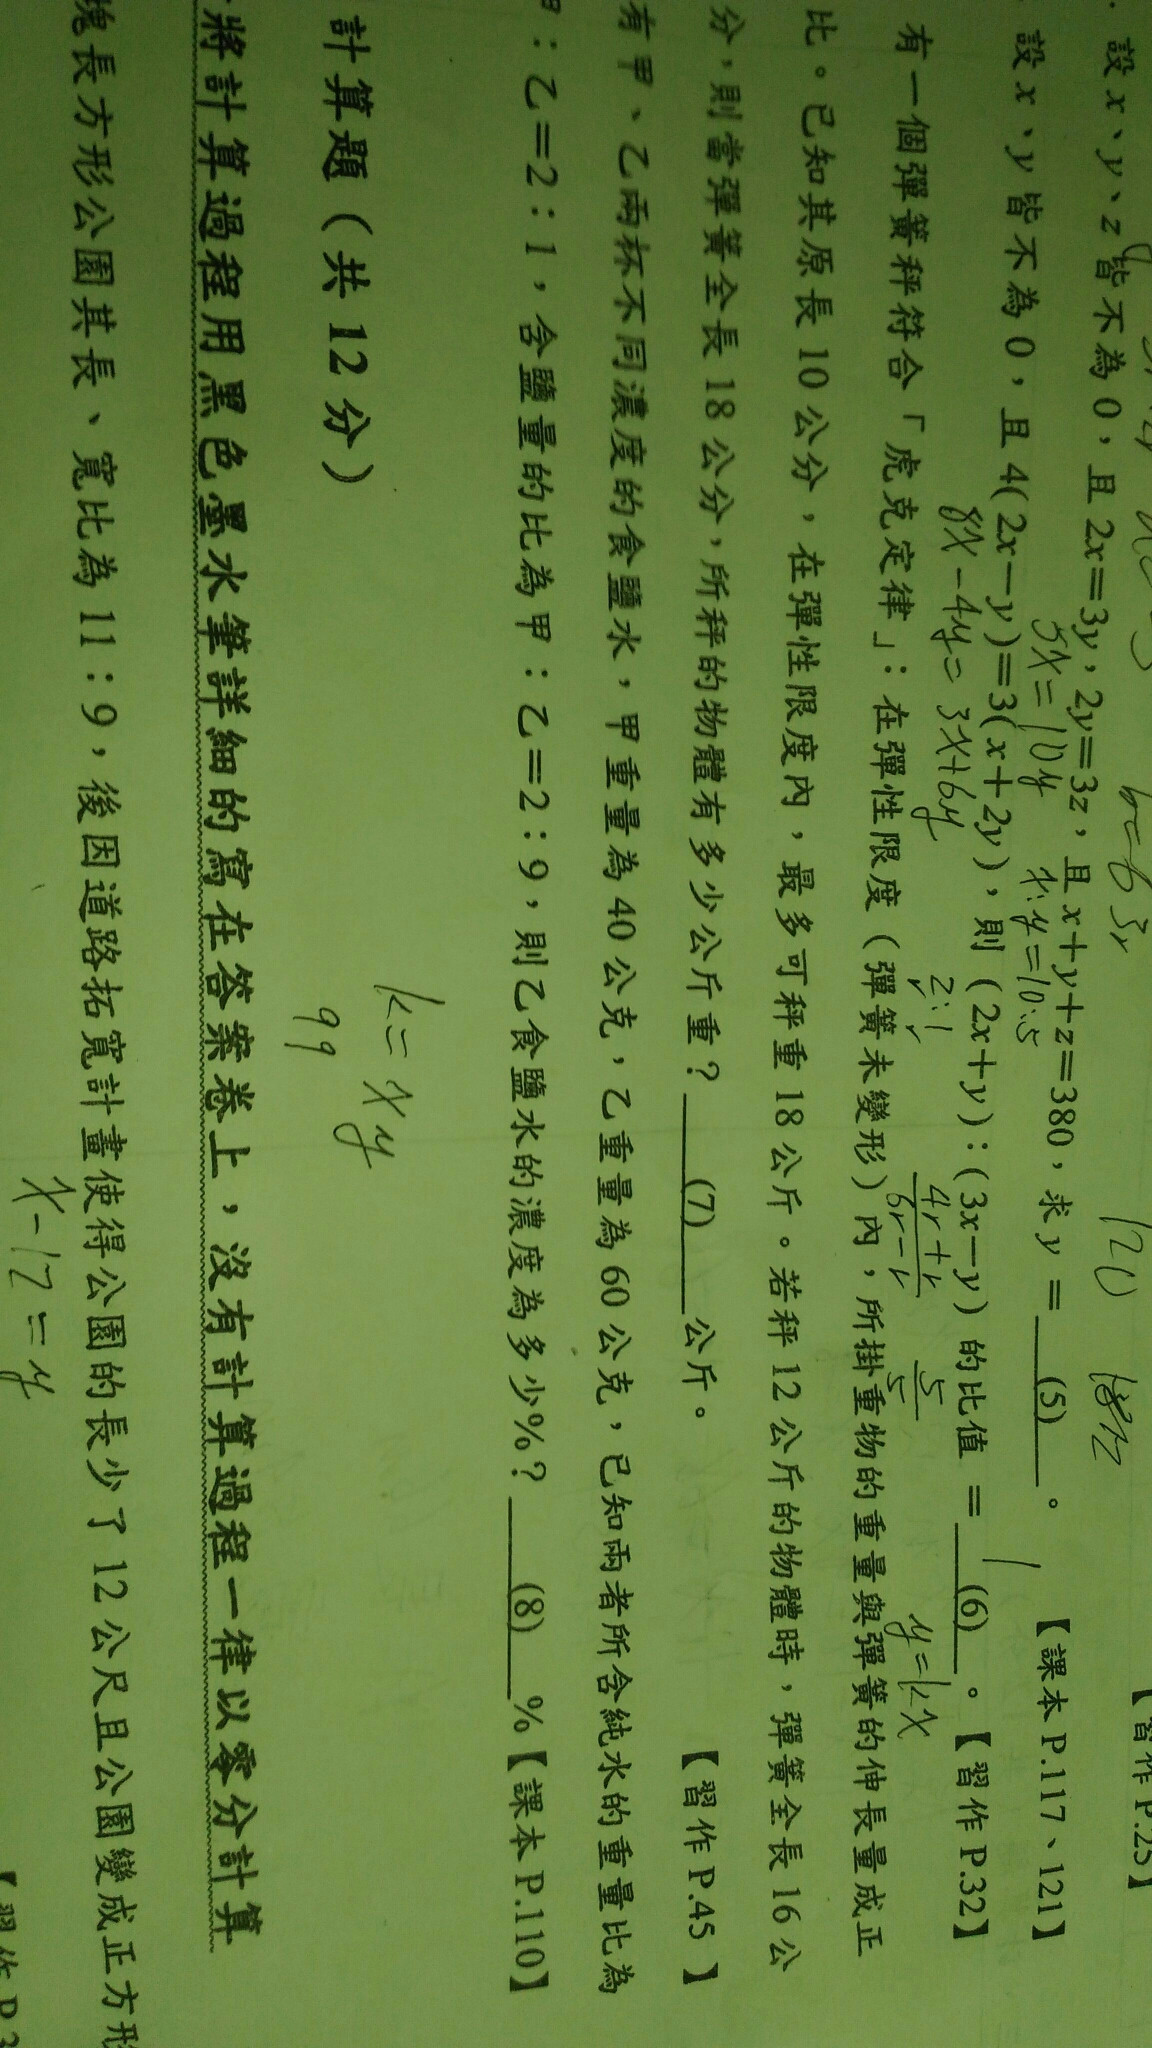 【習作 P.25】
b=6 3r
120 182
設 x、y、z 皆不為 0，且 2x＝3y，2y＝3z，且 x＋y＋z＝380，求 y ＝ (5) 。 【課本 P.117、121】
5x=10y x:y=10:5
設 x、y 皆不為 0，且 4(2x－y)＝3(x＋2y)，則 (2x＋y)：(3x－y) 的比值 ＝ (6) 。【習作 P.32】
1
8x-4y=3x+6y 2:1 4r+r/6r-r 5/5
y=kx
有一個彈簧秤符合「虎克定律」：在彈性限度（彈簧未變形）內，所掛重物的重量與彈簧的伸長量成正
比。已知其原長 10 公分，在彈性限度內，最多可秤重 18 公斤。若秤 12 公斤的物體時，彈簧全長 16 公
分，則當彈簧全長 18 公分，所秤的物體有多少公斤重？ (7) 公斤。 【習作 P.45 】
有甲、乙兩杯不同濃度的食鹽水，甲重量為 40 公克，乙重量為 60 公克，已知兩者所含純水的重量比為
甲：乙＝2：1，含鹽量的比為甲：乙＝2：9，則乙食鹽水的濃度為多少%？ (8) %【課本 P.110】
k=xy
計算題（共 12 分）
99
將計算過程用黑色墨水筆詳細的寫在答案卷上，沒有計算過程一律以零分計算
塊長方形公園其長、寬比為 11：9，後因道路拓寬計畫使得公園的長少了 12 公尺且公園變成正方形
x-12=y
【習作 P.3